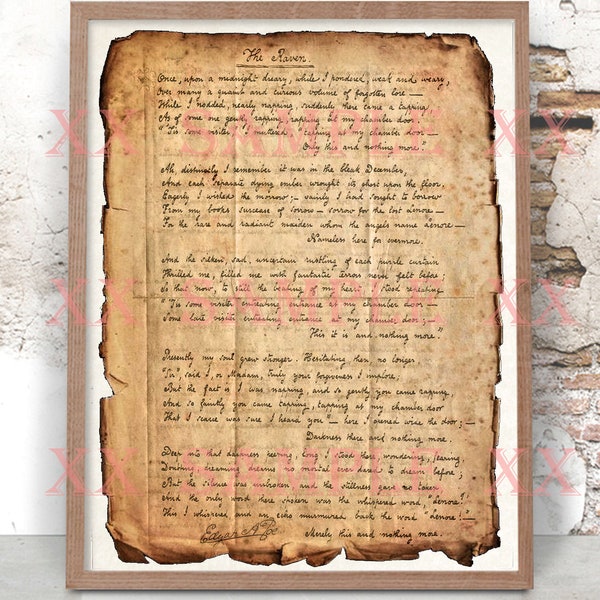 The Raven.
Once, upon a midnight dreary, while I pondered, weak and weary,
Over many a quaint and curious volume of forgotten lore —
While I nodded, nearly napping, suddenly there came a tapping,
As of some one gently rapping, rapping at my chamber door.
"'Tis some visiter," I muttered, "tapping at my chamber door —
Only this and nothing more."
XX SAMPLE XX
Ah, distinctly I remember it was in the bleak December,
And each separate dying ember wrought its ghost upon the floor.
Eagerly I wished the morrow; — vainly I had sought to borrow
From my books surcease of sorrow — sorrow for the lost Lenore —
For the rare and radiant maiden whom the angels name Lenore —
Nameless here for evermore.
And the silken, sad, uncertain rustling of each purple curtain
Thrilled me, filled me with fantastic terrors never felt before;
So that now, to still the beating of my heart, I stood repeating
"'Tis some visiter entreating entrance at my chamber door —
XX SAMPLE XX
Some late visiter entreating entrance at my chamber door; —
This it is and nothing more."
Presently my soul grew stronger. Hesitating then no longer,
"Sir," said I, "or Madam, truly your forgiveness I implore;
But the fact is I was napping, and so gently you came rapping,
And so faintly you came tapping, tapping at my chamber door
That I scarce was sure I heard you" — here I opened wide the door; —
Darkness there and nothing more.
Deep into that darkness peering, long I stood there, wondering, fearing
XX SAMPLE XX
Doubting, dreaming dreams no mortal ever dared to dream before;
But the silence was unbroken, and the stillness gave no token,
And the only word there spoken was the whispered word, "Lenore!"
This I whispered, and an echo murmured back the word "Lenore!" —
Merely this and nothing more.
Edgar A Poe